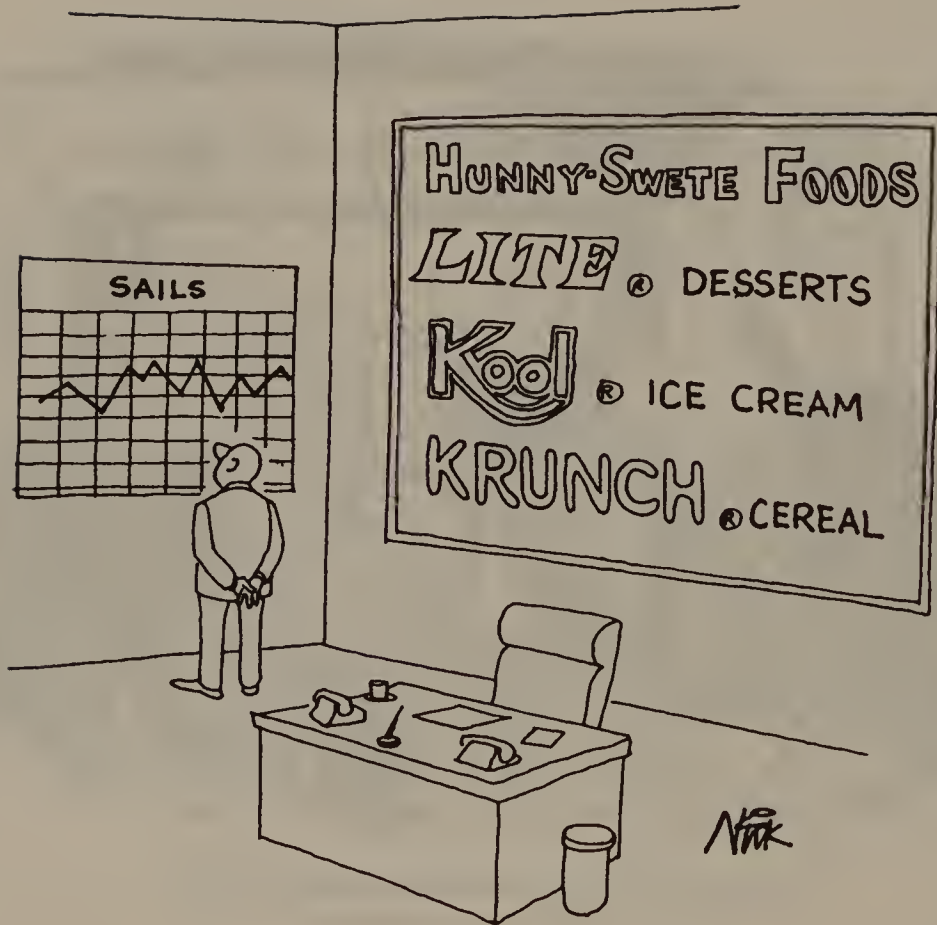 SAILS
HUNNY-SWETE FOODS
LITE ® DESSERTS
Kool ® ICE CREAM
KRUNCH ® CEREAL